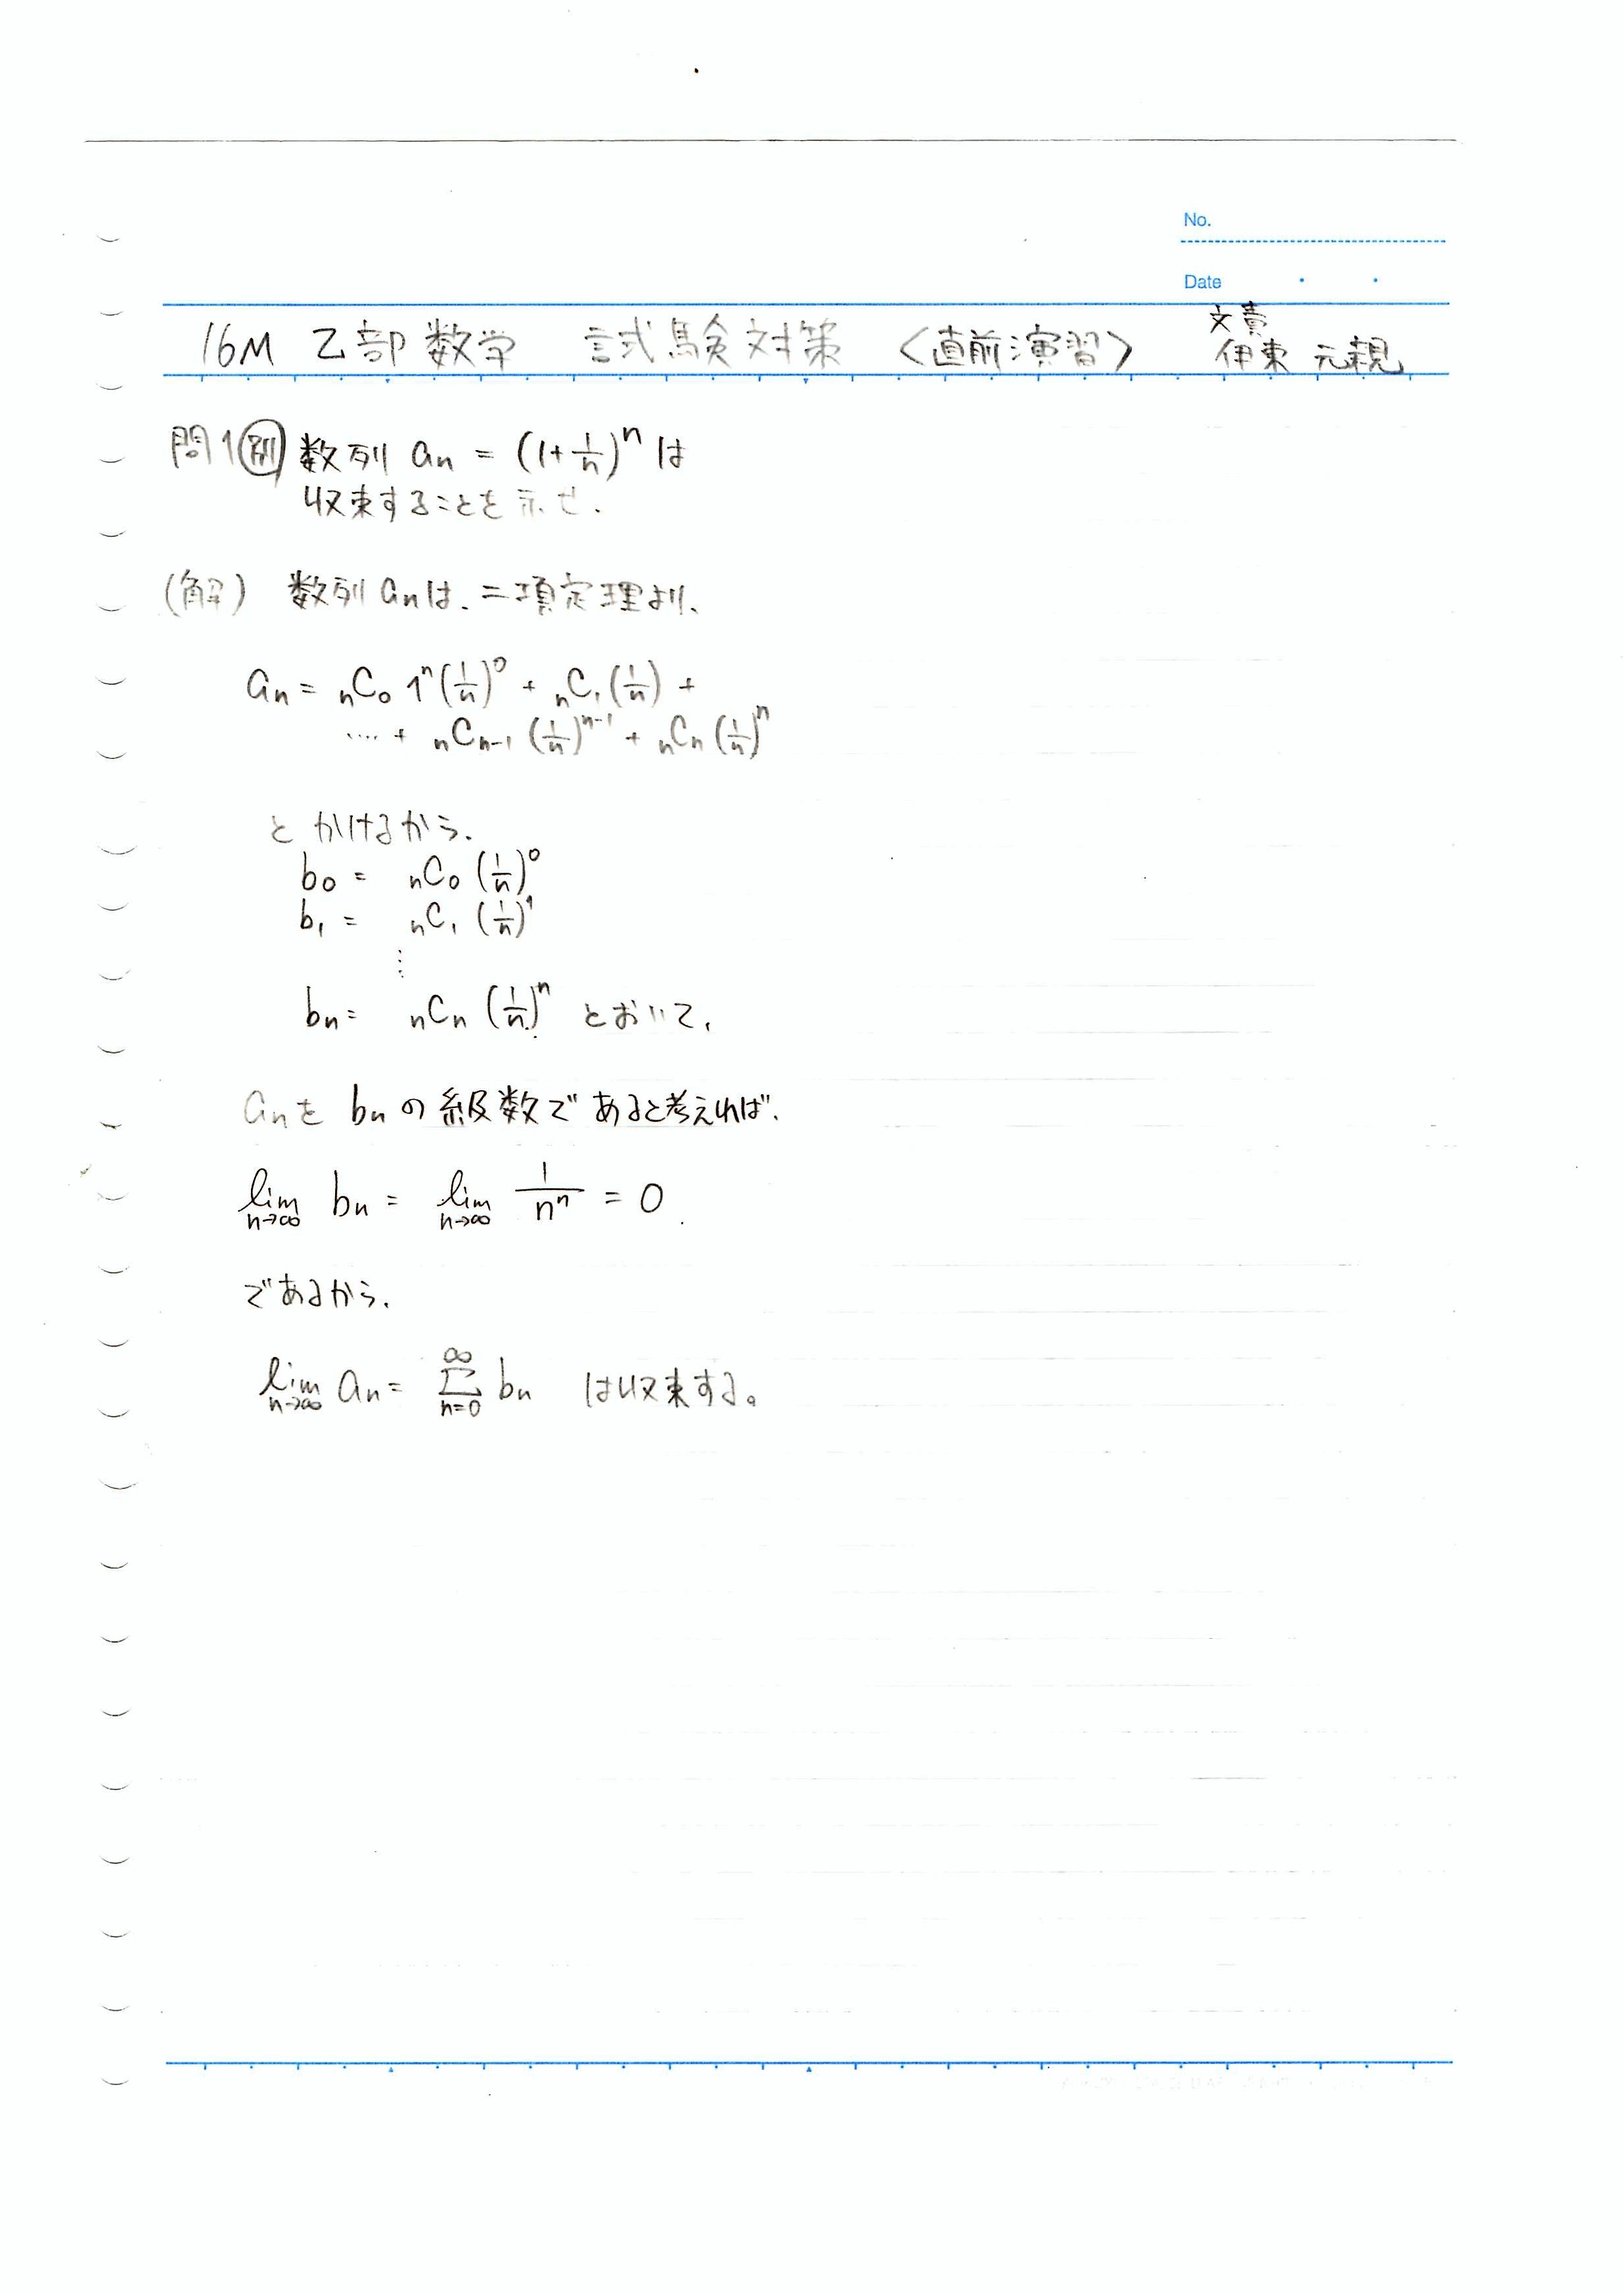 No.
Date
16M 乙部数学 試験対策 〈直前演習〉
文責
伊東 元親
問1 別 数列 an = (1+1/n)^n は
収束することを示せ.
(解) 数列 an は、二項定理より、
an = nC0 1^n (1/n)^0 + nC1 (1/n) +
.... + nCn-1 (1/n)^n-1 + nCn (1/n)^n
とかけるから.
b0 = nC0 (1/n)^0
b1 = nC1 (1/n)^1
⋮
bn = nCn (1/n)^n とおいて、
anを bn の級数であると考えれば、
lim n→∞ bn = lim n→∞ 1/n^n = 0
であるから.
lim n→∞ an = ∞Σn=0 bn は収束する。